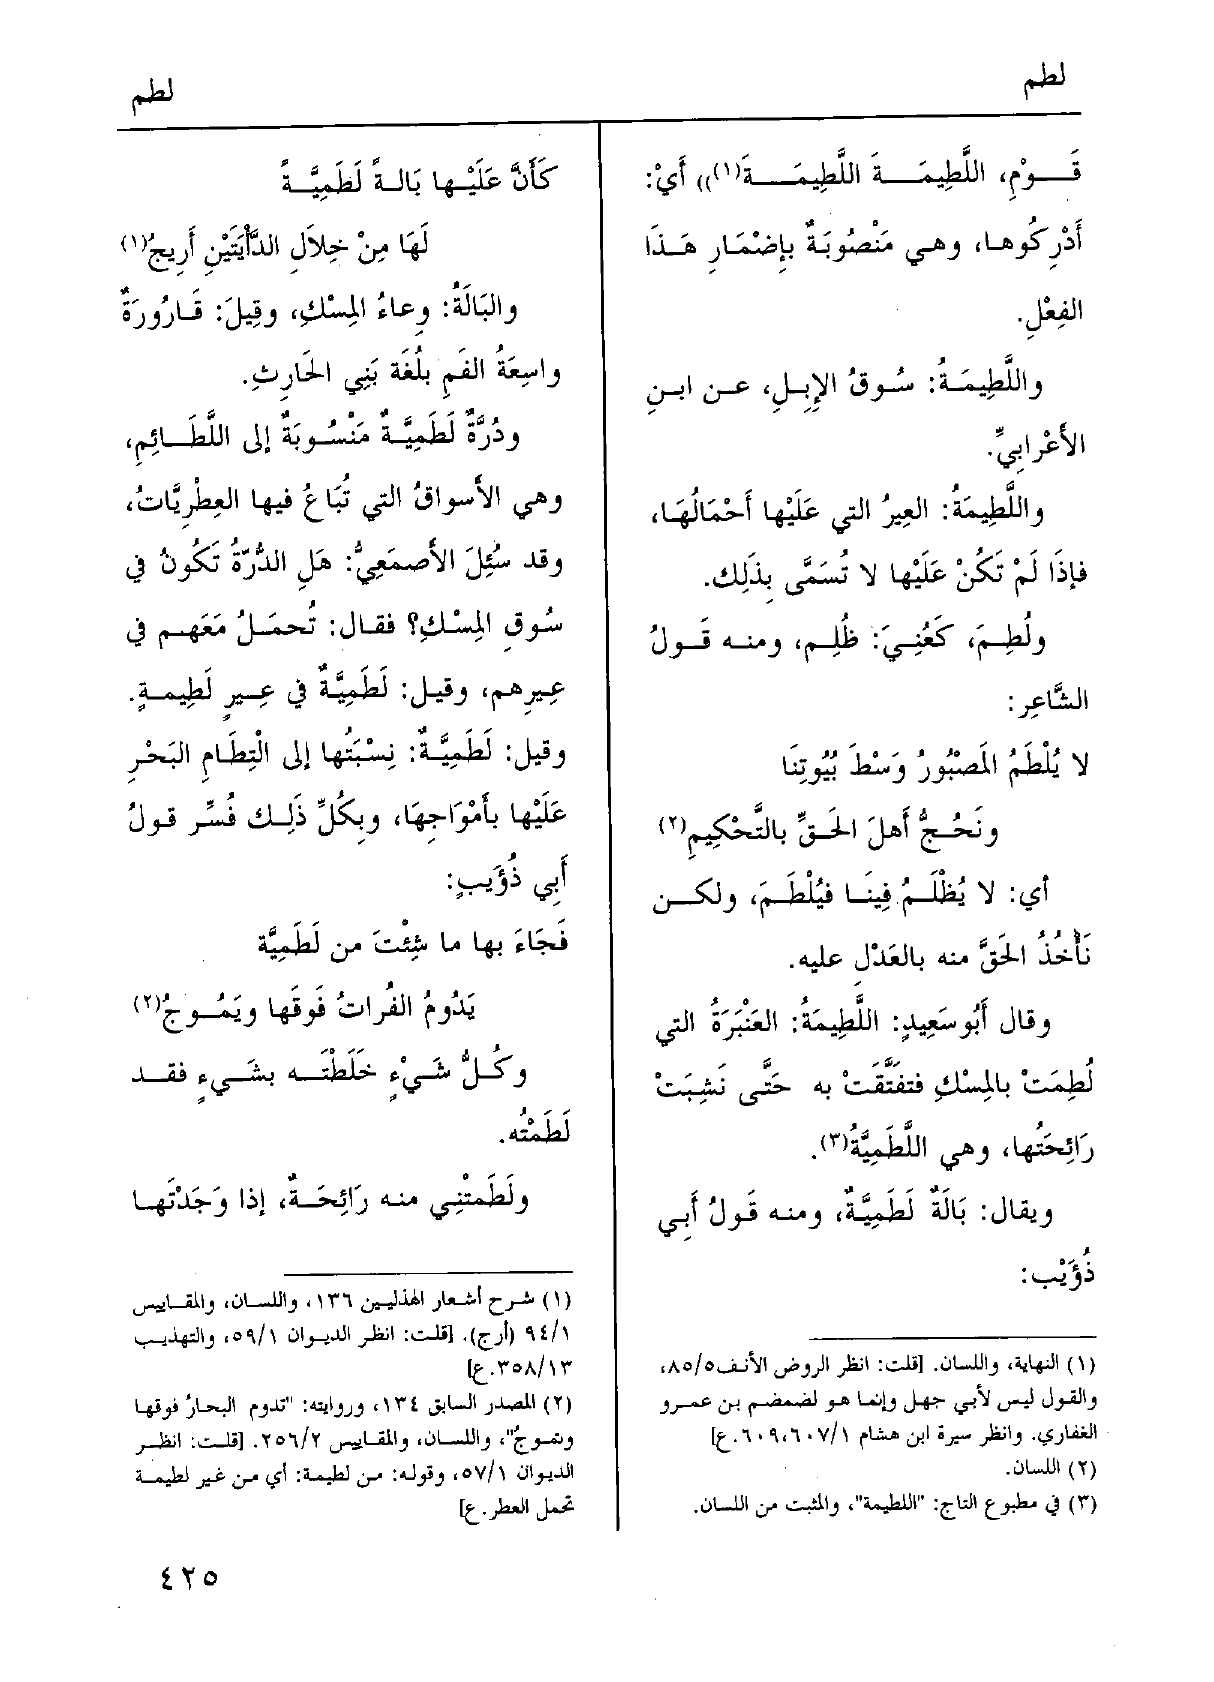 لطم
لطم
قَـوْمِ، اللَّطِيمَـةَ اللَّطِيمَـةَ(١))) أَيْ:
أَدْرِكُوها، وهي مَنْصُوبَةٌ بِإضْمَارِ هَـذَا
الفِعْلِ.
واللَّطِيمَةُ: سُوقُ الإِبِلِ، عن ابنِ
الأَعْرابِيِّ.
واللَّطِيمَةُ: العِيرُ التي عَلَيْها أَحْمَالُهَا،
فإِذَا لَمْ تَكُنْ عَلَيْها لا تُسَمَّى بِذَلِك.
ولُطِمَ، كَعُنِيَ: ظُلِم، ومنه قَـولُ
الشَّاعِر:
لا يُلْطَمُ المَصْبُور وَسْطَ بُيُوتِنَا
ونَحُجُّ أَهلَ الحَقِّ بالتَّحْكِيمِ(٢)
أي: لا يُظْلَـمُ فِينَـا فيُلْطَمَ، ولكـن
نَأْخُذُ الحَقَّ منه بالعَدْلِ عليه.
وقال أَبُو سَعِيدٍ: اللَّطِيمَةُ: العَنْبَرَةُ التي
لُطِمَتْ بالمِسْكِ فتفَتَّقَتْ به حَتَّى نَشِبَتْ
رَائِحَتُها، وهي اللَّطَمِيَّةُ(٣).
ويقال: بَالَةٌ لَطَمِيَّةٌ، ومنه قَولُ أَبِي
ذُؤَيْب:
(١) النهاية، واللسان. [قلت: انظر الروض الأنف ٨٥/٥،
والقول ليس لأبي جهل وإنما هو لضمضم بن عمرو
الغفاري. وانظر سيرة ابن هشام ٦٠٧/١، ٦٠٩.ع]
(٢) اللسان.
(٣) في مطبوع التاج: "اللطيمة"، والمثبت من اللسان.
كَأَنَّ عَلَيْـها بَالـةً لَطَمِيَّـةً
لَهَا مِنْ خِلَالِ الدَّأْيَتَيْنِ أَرِيجُ(١)
والبَالَةُ: وِعاءُ المِسْكِ، وقِيلَ: قَـارُورَةٌ
واسِعَةُ الفَمِ بلُغَة بَنِي الحَارِثِ.
ودُرَّةٌ لَطَمِيَّـةٌ مَنْسُـوبَةٌ إلى اللَّطَـائِمِ،
وهي الأَسواقُ التي تُبَاعُ فيها العِطْرِيَّاتُ،
وقد سُئِلَ الأَصمَعِيُّ: هَلِ الدُّرّةُ تَكُونُ في
سُوقِ المِسْكِ؟ فقال: تُحمَـلُ مَعَهـم في
عِيرِهم، وقيل: لَطَمِيَّةٌ في عِـيرِ لَطِيمـةٍ.
وقيل: لَطَمِيَّـةٌ: نِسْبَتُها إلى الْتِطَامِ البَحْرِ
عَلَيْها بأَمْوَاجِهَا، وبكُلِّ ذَلِـك فُسِّر قـولُ
أَبي ذُؤَيبٍ:
فَجَاءَ بها ما شِئْتَ من لَطَمِيَّة
يَدُومُ الفُراتُ فَوقَها ويَمُـوجُ(٢)
وكُـلُّ شَـيْءٍ خَلَطْتَـه بشَـيءٍ فقـد
لَطَمْتُه.
ولَطَمتْنِي منه رَائِحَـةٌ، إذا وَجَدْتَهـا
(١) شرح أشعار الهذليين ١٣٦، واللسان، والمقاييس
٩٤/١ (أرج). [قلت: انظر الديوان ٥٩/١، والتهذيب
٣٥٨/١٣.ع]
(٢) المصدر السابق ١٣٤، وروايته: "تدوم البحارُ فوقها
وتموجُ"، واللسان، والمقاييس ٢٥٦/٢. [قلت: انظـر
الديوان ٥٧/١، وقوله: من لطيمة: أي من غير لطيمة
تحمل العطر.ع]
٤٢٥